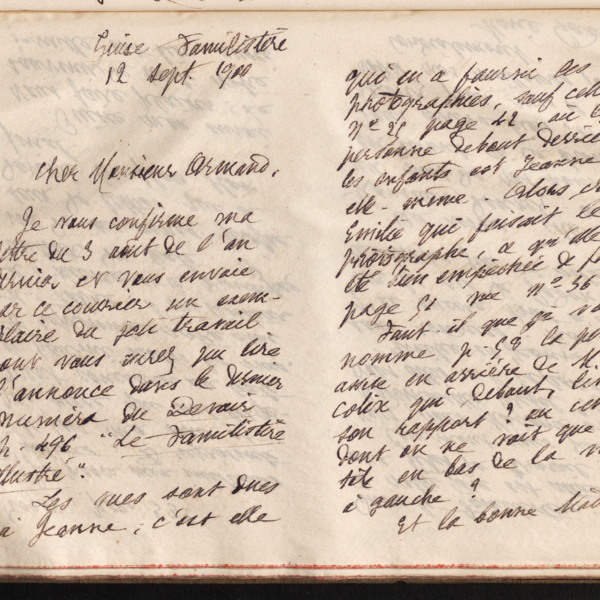 Guise Familistère
12 sept. 1900
Cher Monsieur Armand,
Je vous confirme ma
lettre du 3 août de l'an
dernier et vous envoie
par ce courrier un exem-
plaire du joli travail
dont vous aurez pu lire
l'annonce dans le dernier
numéro du Devoir
p. 496 "Le Familistère
illustré".
Les vues sont dues
à Jeanne ; c'est elle
qui en a fourni les
photographies, sauf celle
n° 25 page 42, où la
personne debout derrière
les enfants est Jeanne
elle-même. Alors, c'
Emilie qui faisait le
photographe, a
été bien empêchée de
page 51 vue n° 36
Faut-il que je vo
nomme p. 58 la pe
assise en arrière de M.
colin qui, debout, lit
son rapport ? ou cel
dont on ne voit que
tête en bas de la v
à gauche ?
Et la bonne